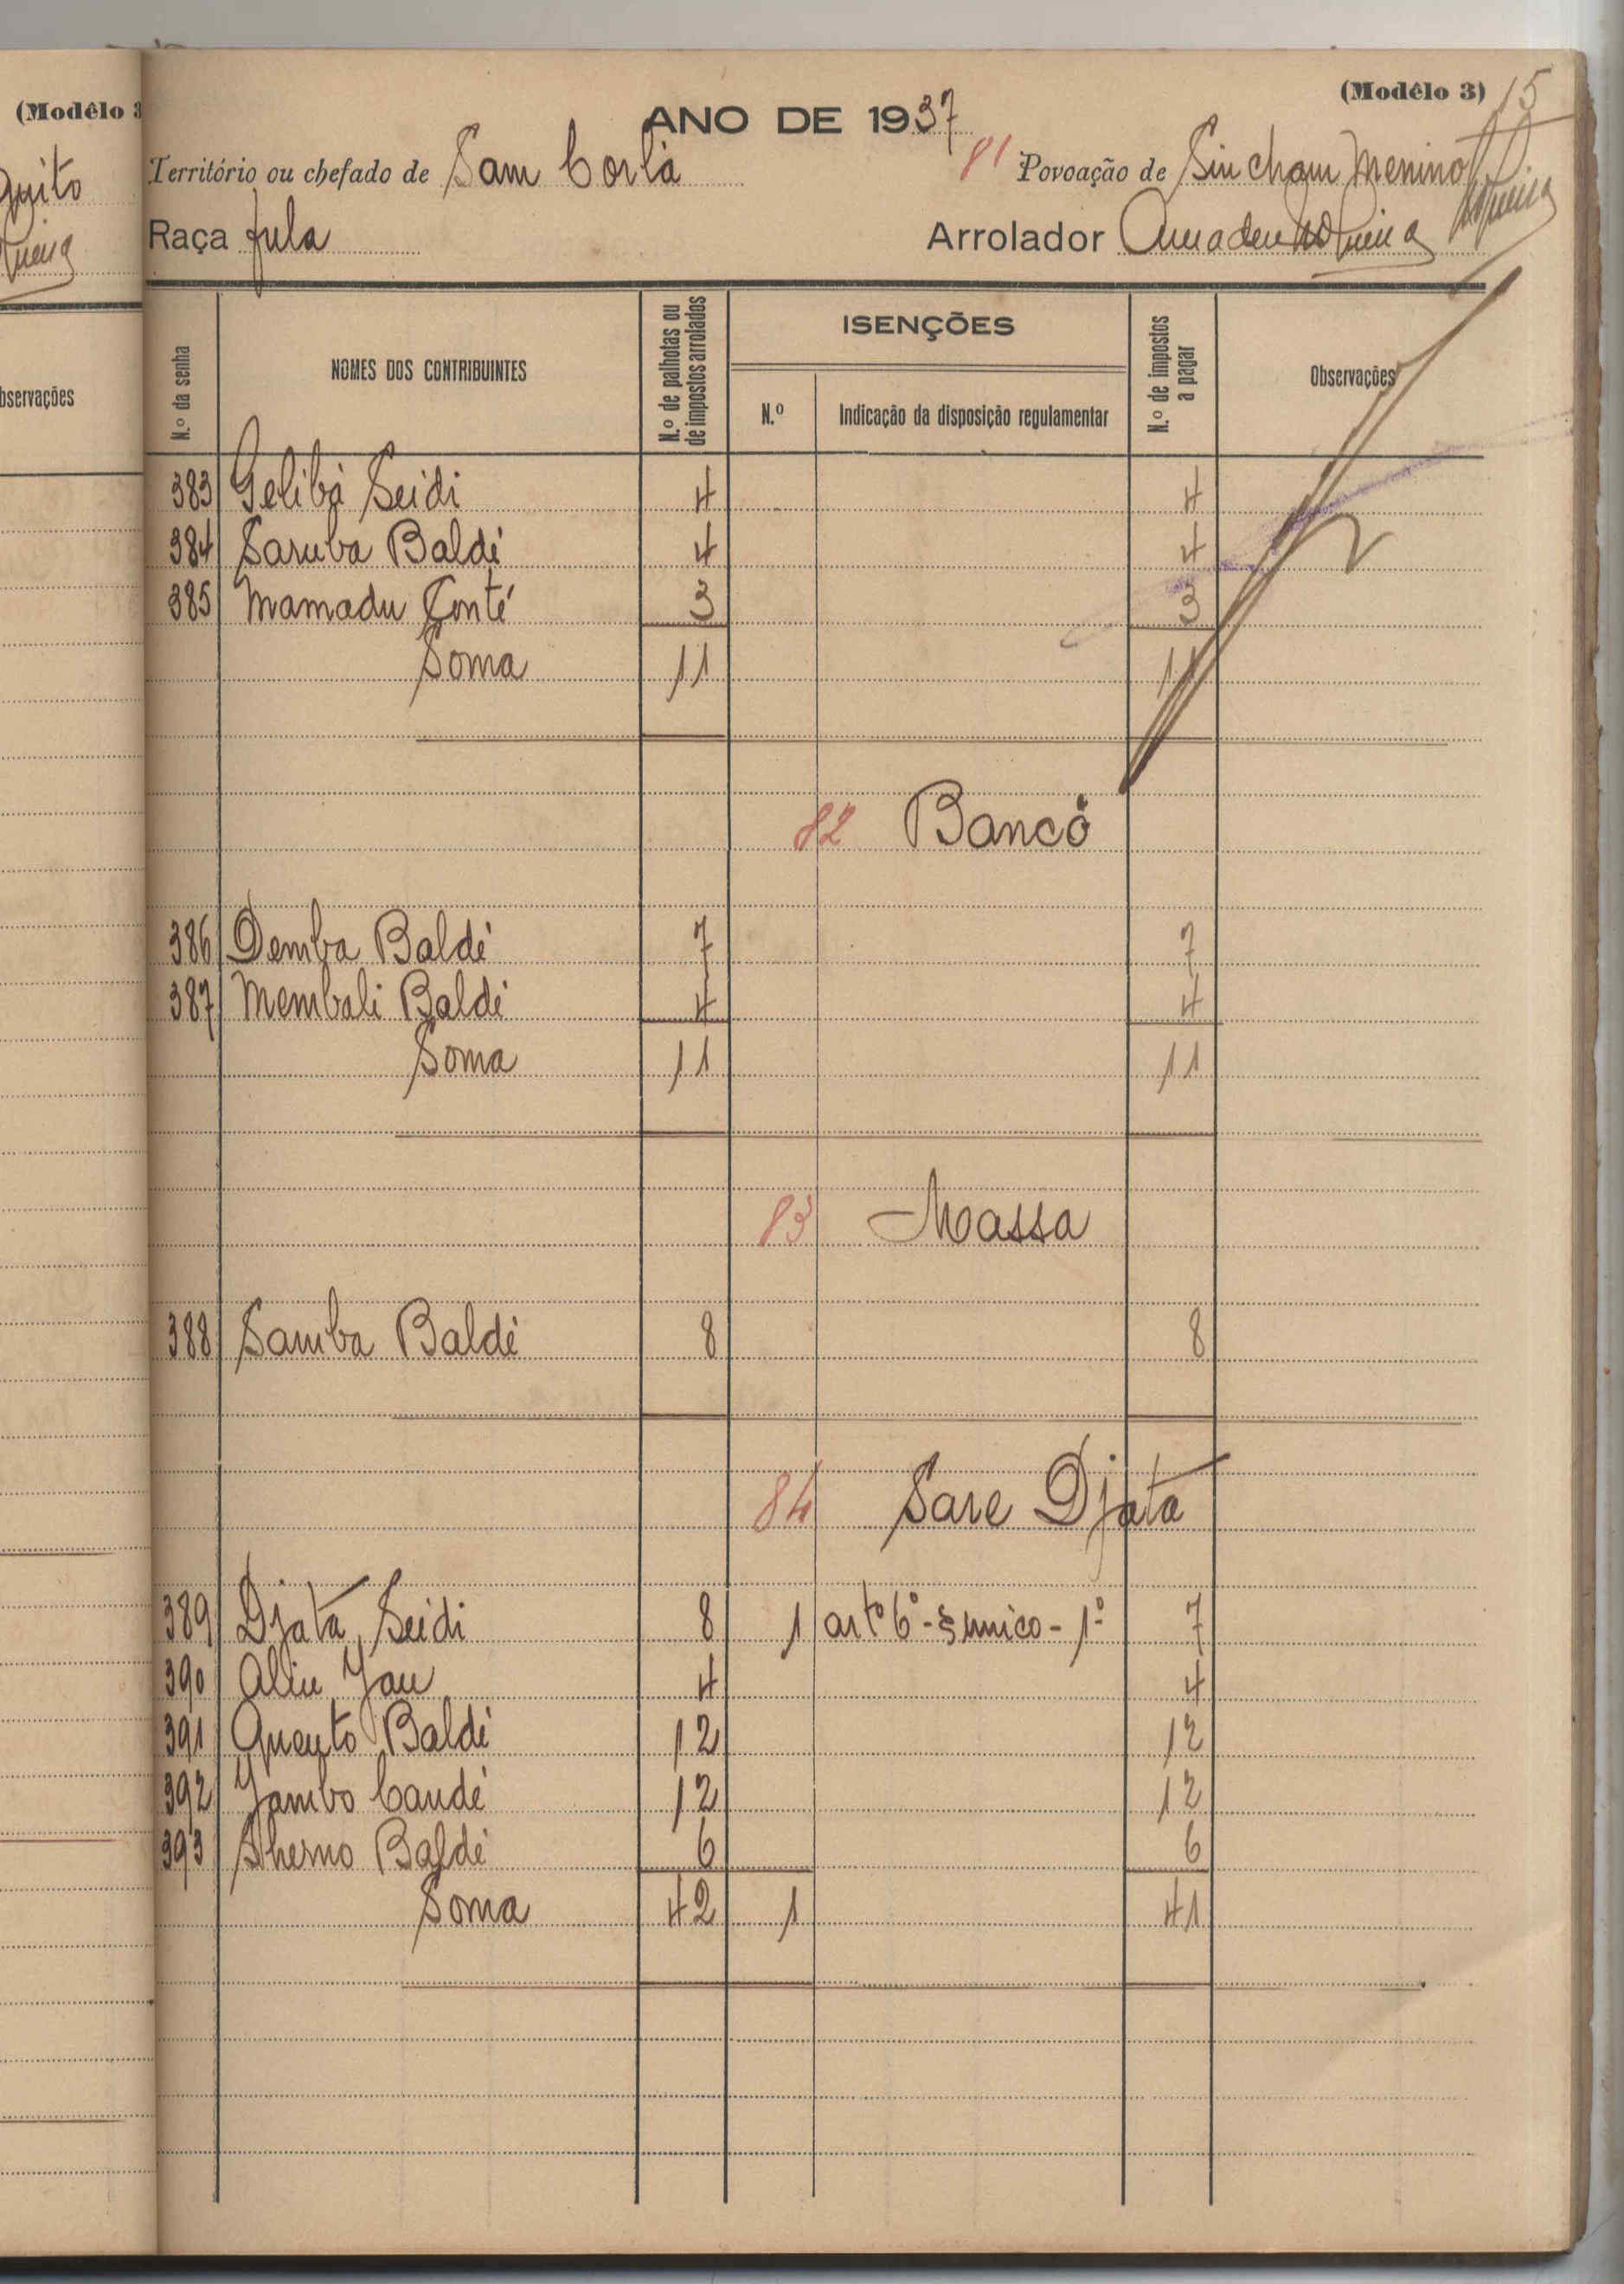 (Modêlo 3
(Modêlo 3) 15
ANO DE 1937
Território ou chefado de Sam Corlá 81 Povoação de Sincham Menino
Raça fula Arrolador Amadeu Nogueira
N.º da senha NOMES DOS CONTRIBUINTES N.º de palhotas ou de impostos arrolados ISENÇÕES N.º Indicação da disposição regulamentar N.º de impostos a pagar Observações
bservações
383 Gelibá Seidi 4 4
384 Saruba Baldé 4 4
385 Mamadu Conté 3 3
Soma 11 11
82 Bancó
386 Demba Baldé 7 7
387 Membali Baldé 4 4
Soma 11 11
83 Massa
388 Samba Baldé 8 8
84 Sare Djata
389 Djatá Seidi 8 1 artº 6º - § unico - 1º 7
390 Aliu Jau 4 4
391 Queuto Baldé 12 12
392 Jambo Candé 12 12
393 Therno Baldé 6 6
Soma 42 1 41